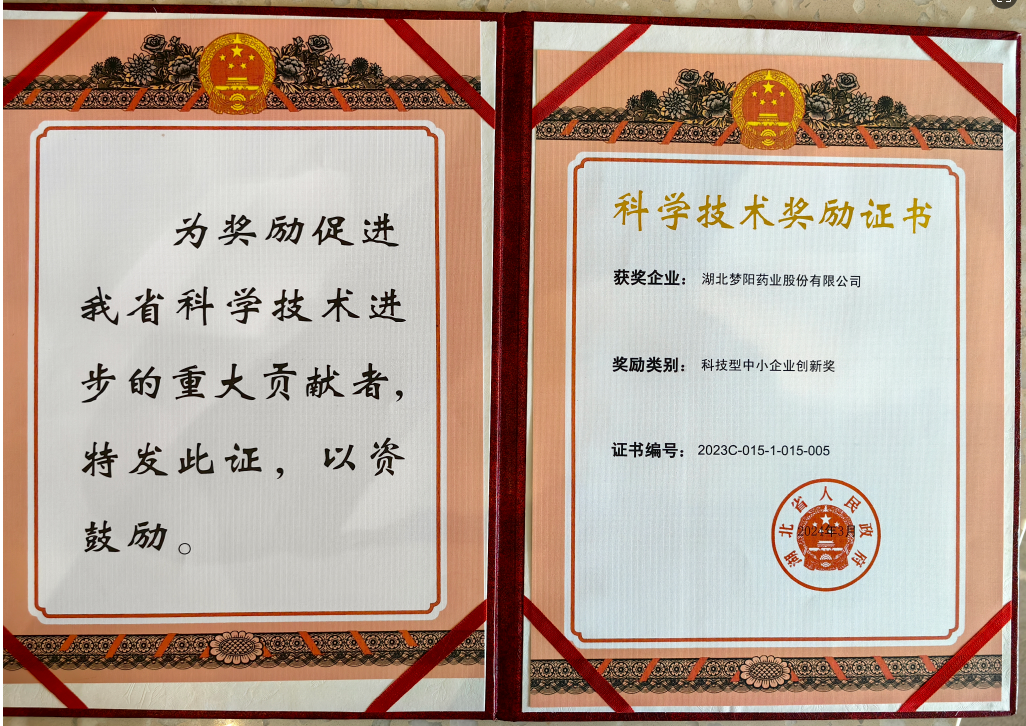 为奖励促进
我省科学技术进
步的重大贡献者，
特发此证，以资
鼓励。
科学技术奖励证书
获奖企业： 湖北梦阳药业股份有限公司
奖励类别： 科技型中小企业创新奖
证书编号： 2023C-015-1-015-005
湖北省人民政府
2024年3月